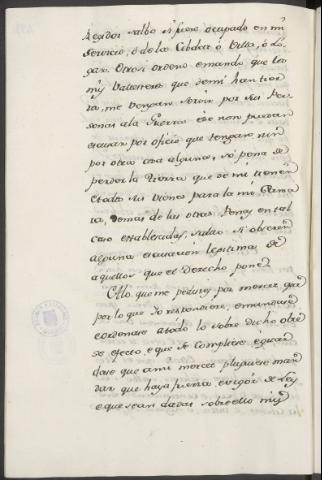 Regidor salbo si fuere ocupado en mi
servicio, ó de la Cibdad ó Villa, ó Lo-
gar. Otrosi ordeno emando que los
mis Vasallos que demi han tier-
ra, me vengan servir por sus Per-
sonas ala Guerra ese non puedan
escusar por oficio que tengan nin
por otra cosa alguna, só pena de
perder la Tierra que de mi tienen
etodos sus vienes para la mi Cama-
ra, demas de las otras Penas en tal
caso establecidas, salvo si obieren
alguna escusacion lejitima de
aquellas que el Derecho pone
Otro, que me pedides por merced que
por lo que Yo respondiere, emandare
eordenare atodo lo sobre dicho obie-
se efecto, e que se cumpliese eguar-
dase que ami merced pluguiese man-
dar que haya fuerza evigór de Ley
e que sean dadas sobre ello mis